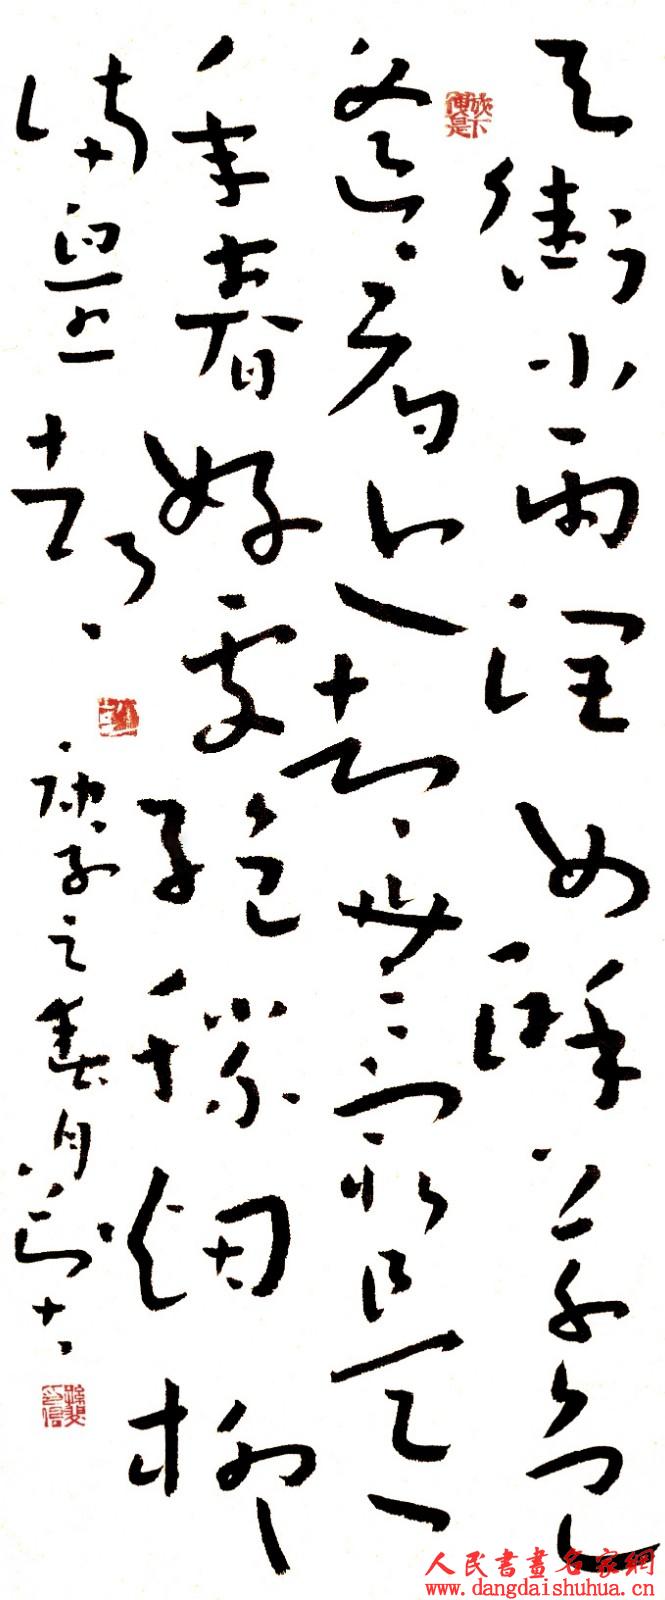 天街小雨潤如酥草色
遙看近却無最是一
年春好處絕勝烟柳
滿皇都
庚子之春月
人民書畫名家網
www.dangdaishuhua.cn